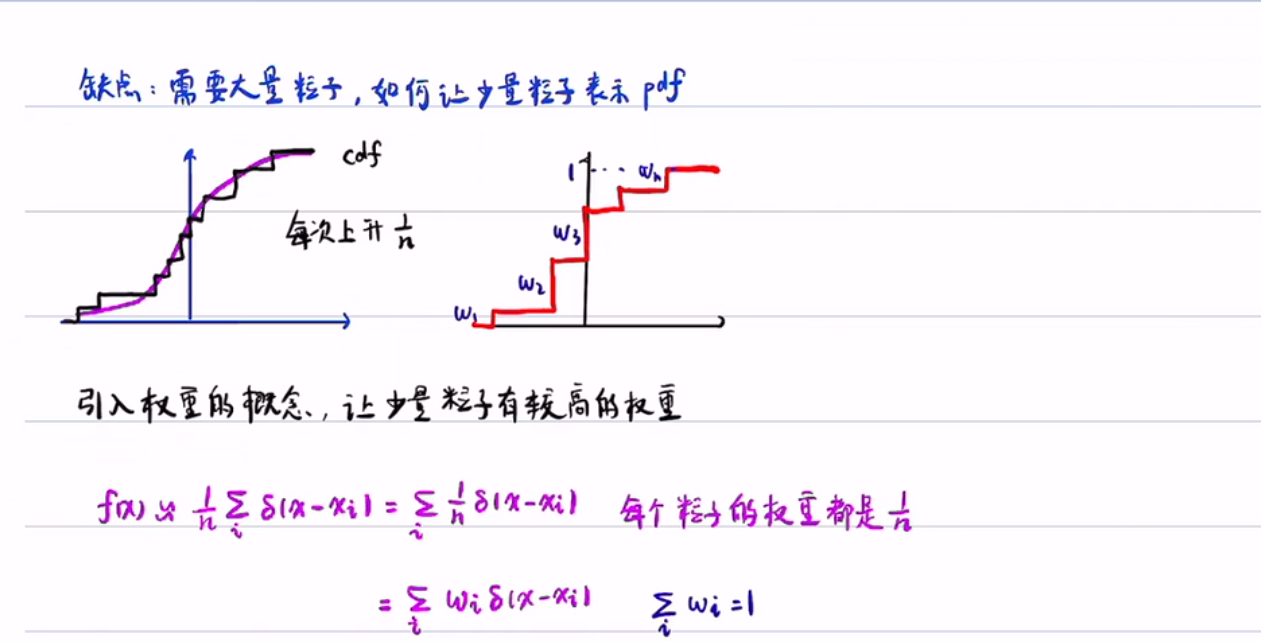 缺点：需要大量粒子，如何让少量粒子表示 pdf
cdf
每次上升 1/n
1 ... wₙ
w₃
w₂
w₁
引入权重的概念，让少量粒子有较高的权重
f(x) ≈ 1/n ∑ᵢ δ(x-xᵢ) = ∑ᵢ 1/n δ(x-xᵢ) 每个粒子的权重都是 1/n
= ∑ᵢ wᵢ δ(x-xᵢ) ∑ᵢ wᵢ = 1